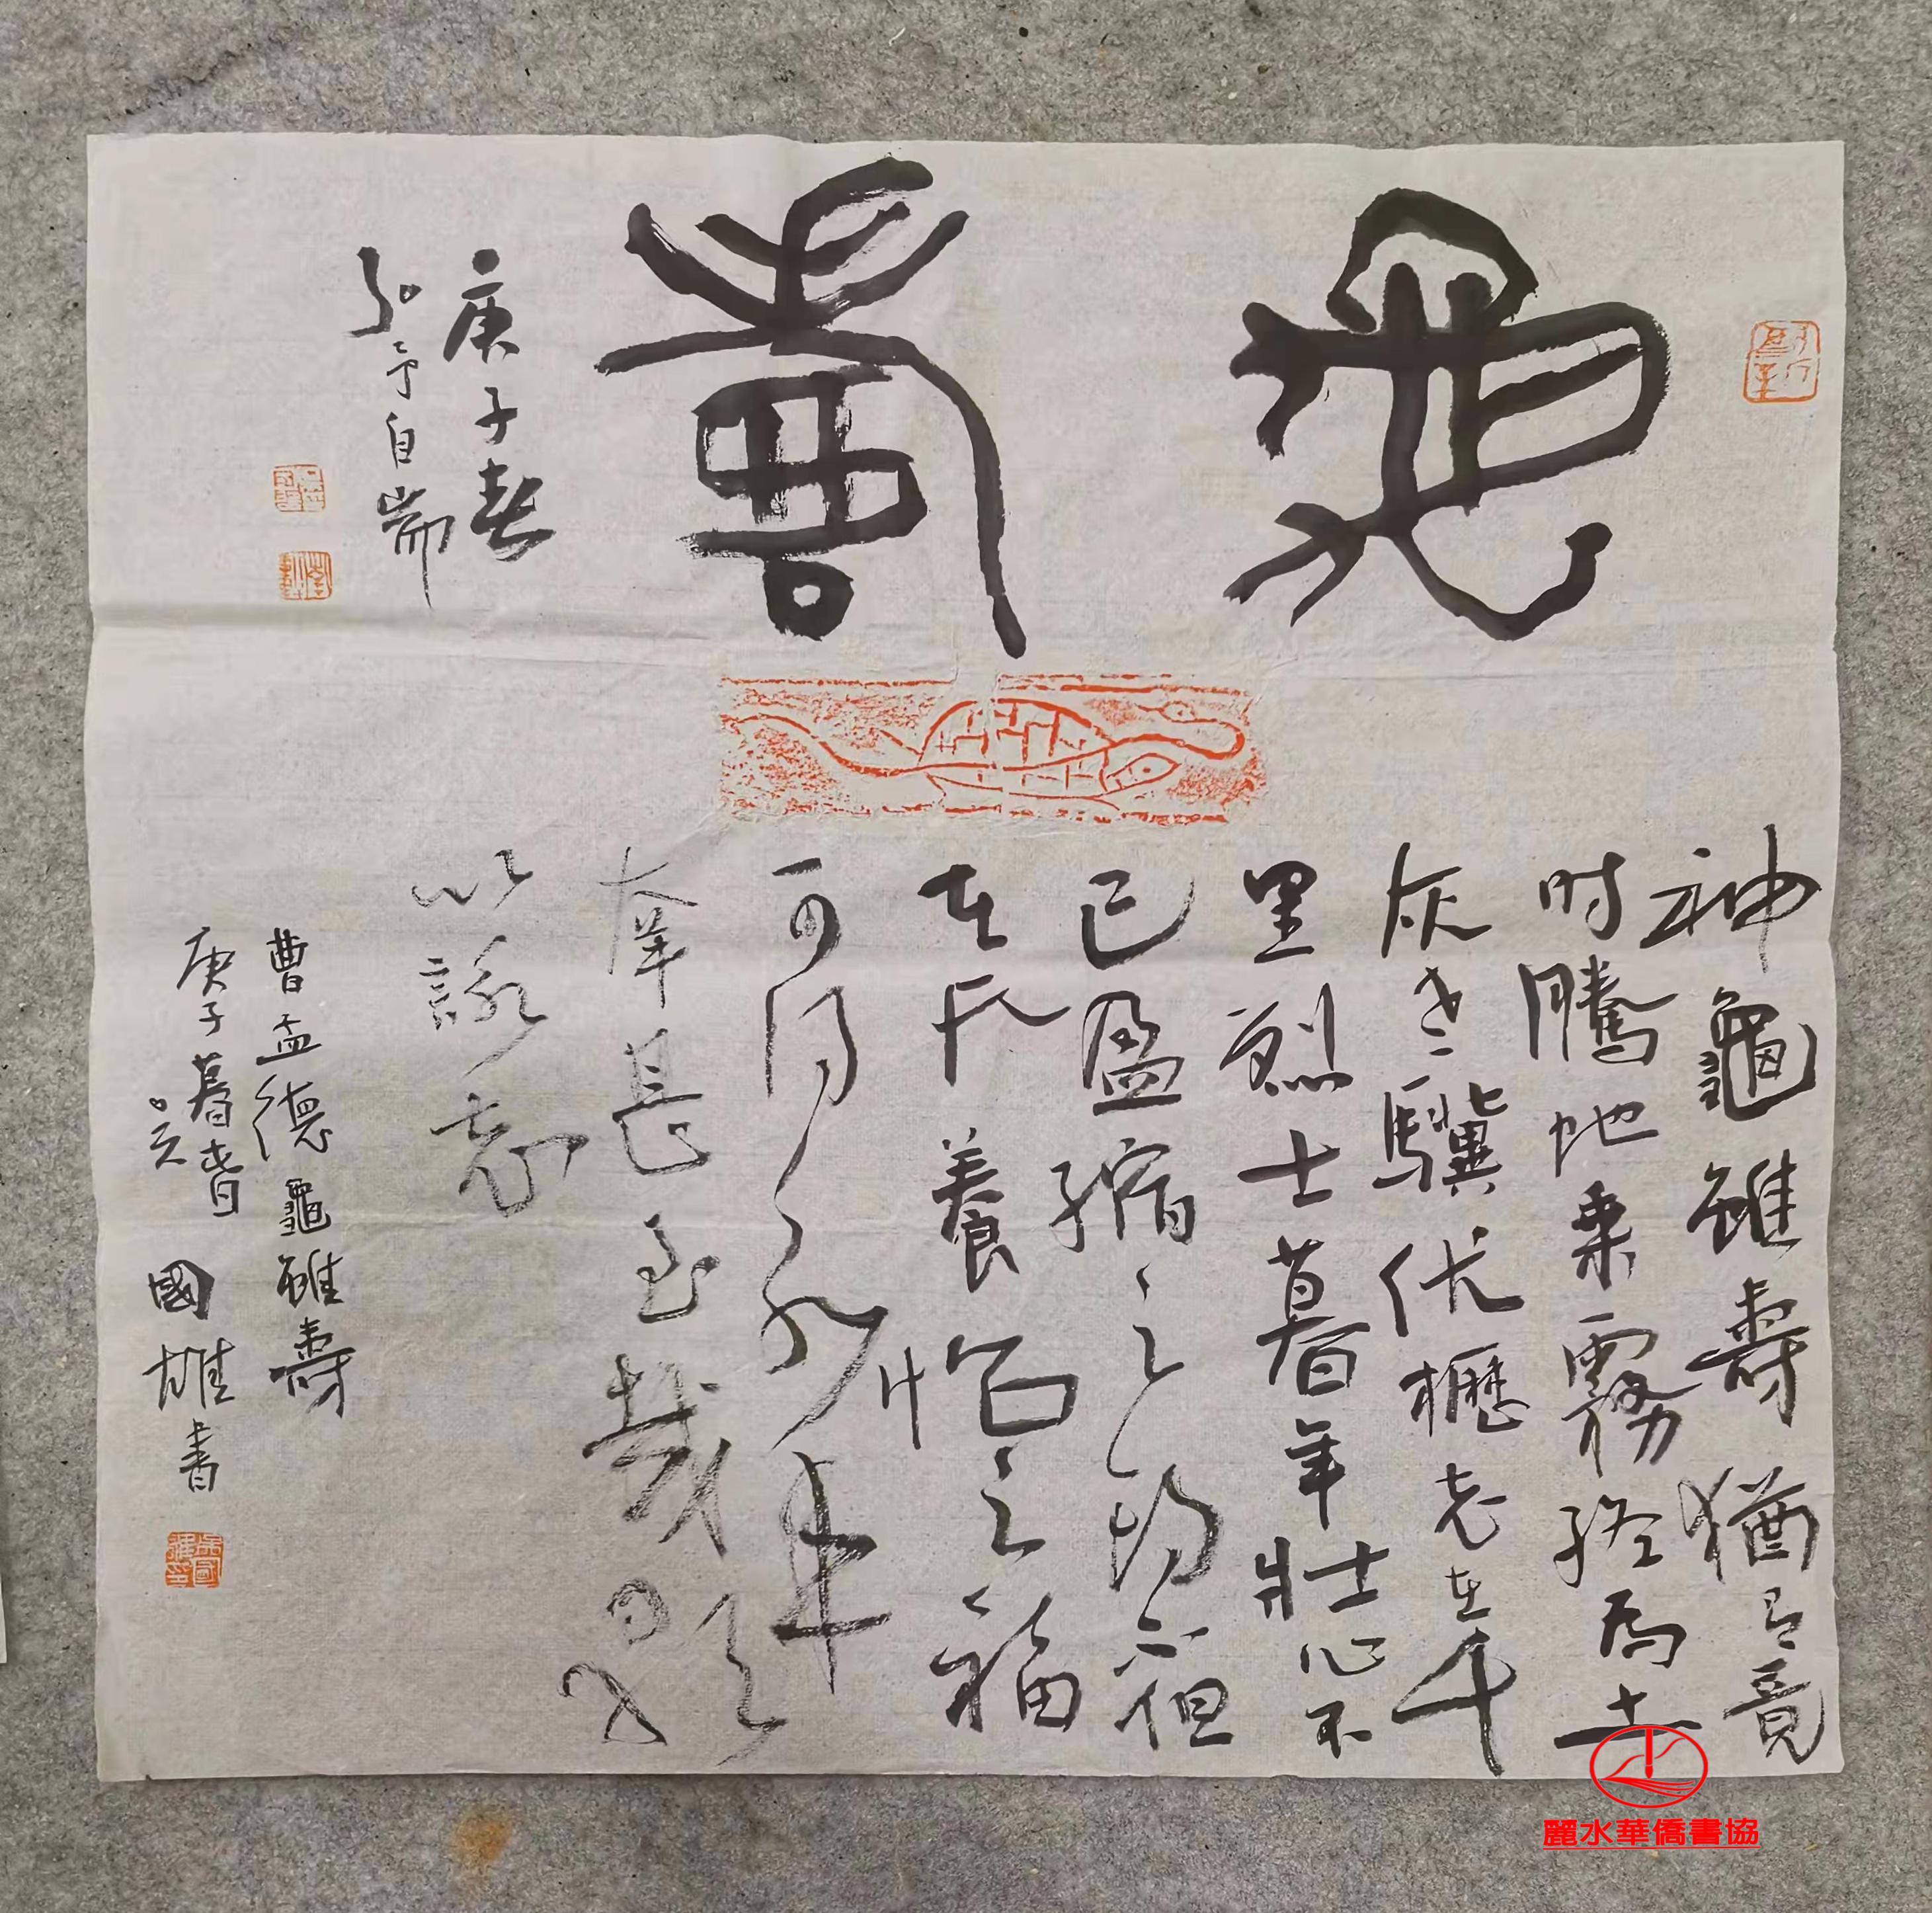 龜壽
庚子春
予自耑
神龜雖壽猶有竟
时騰蛇乘霧終為土
灰老驥伏櫪志在千
里烈士暮年壯心不
已盈縮之期不但
在天養怡之福
可得永年
幸甚至哉歌
以詠志
曹孟德龜雖壽
庚子暮春 國雄書
吳國雄印
麗水華僑書協